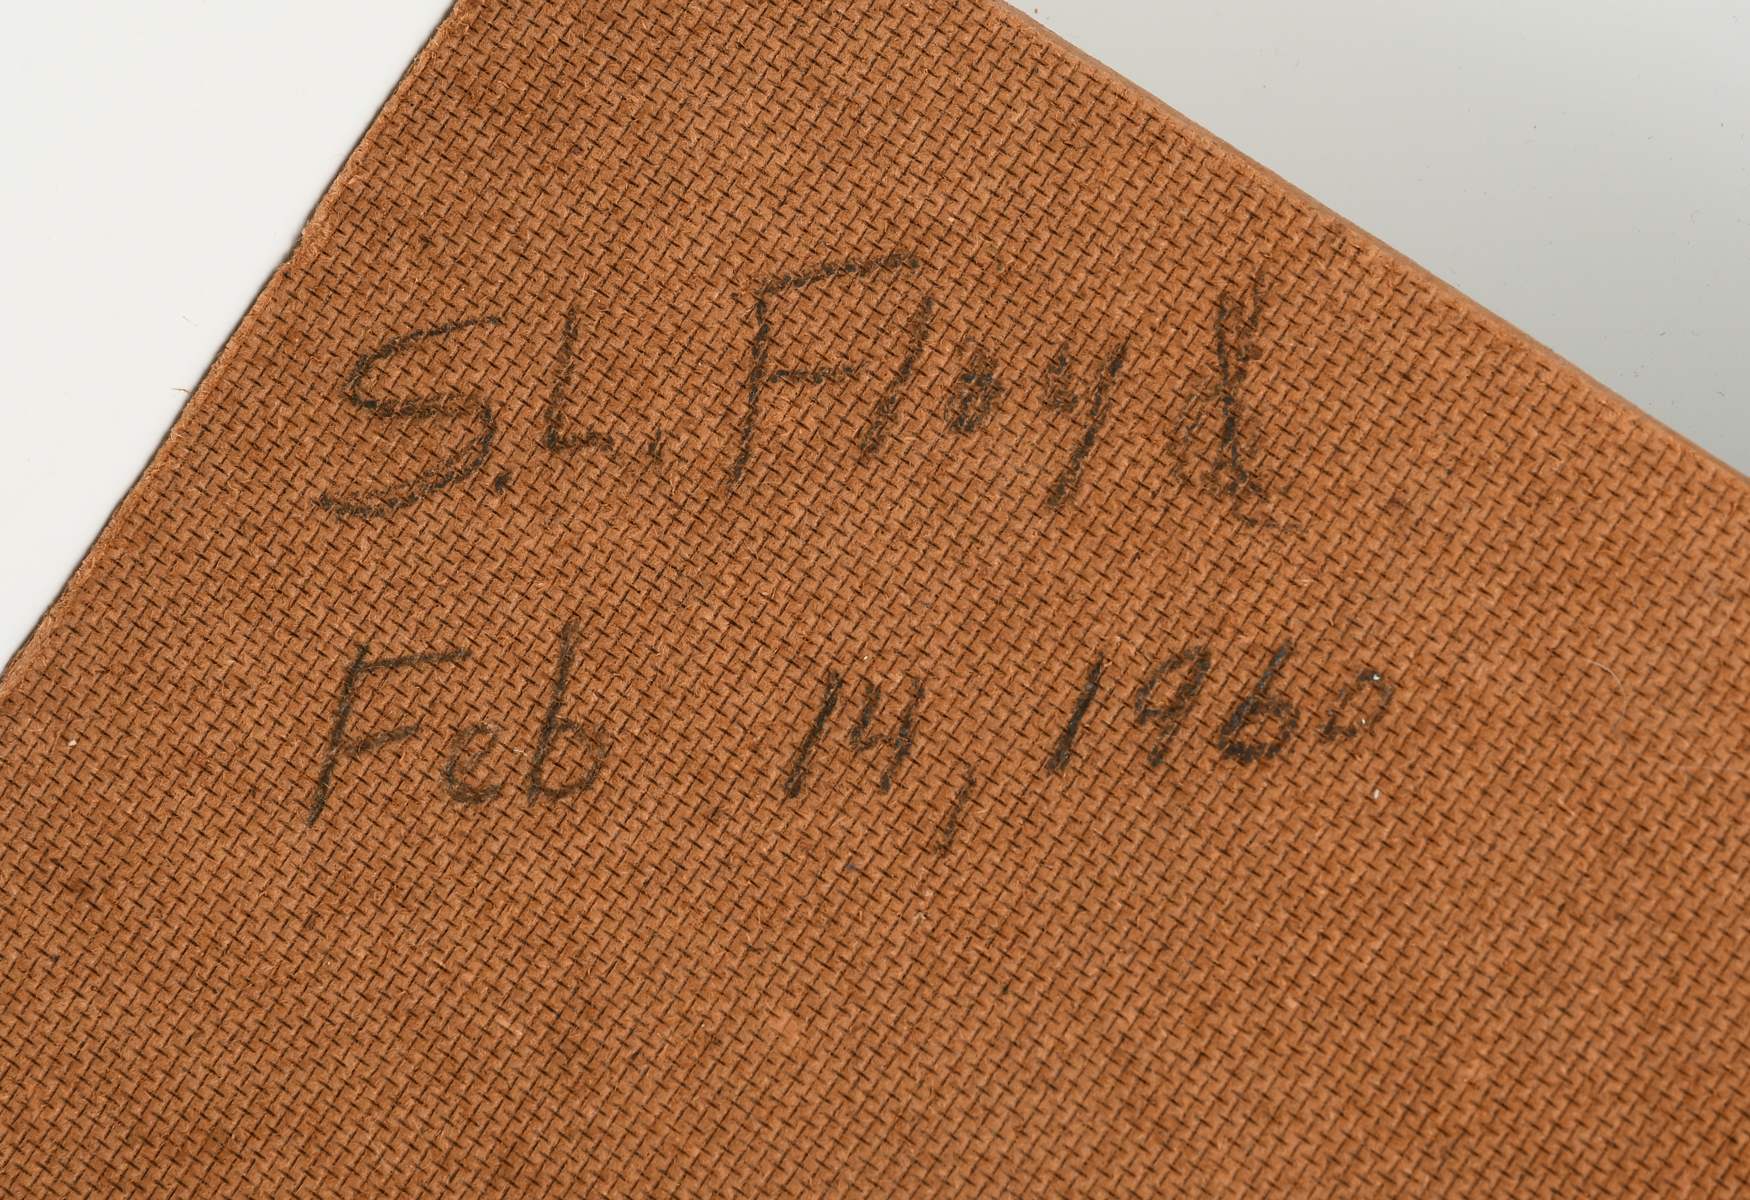 S.L. Floyd
Feb 14, 1960